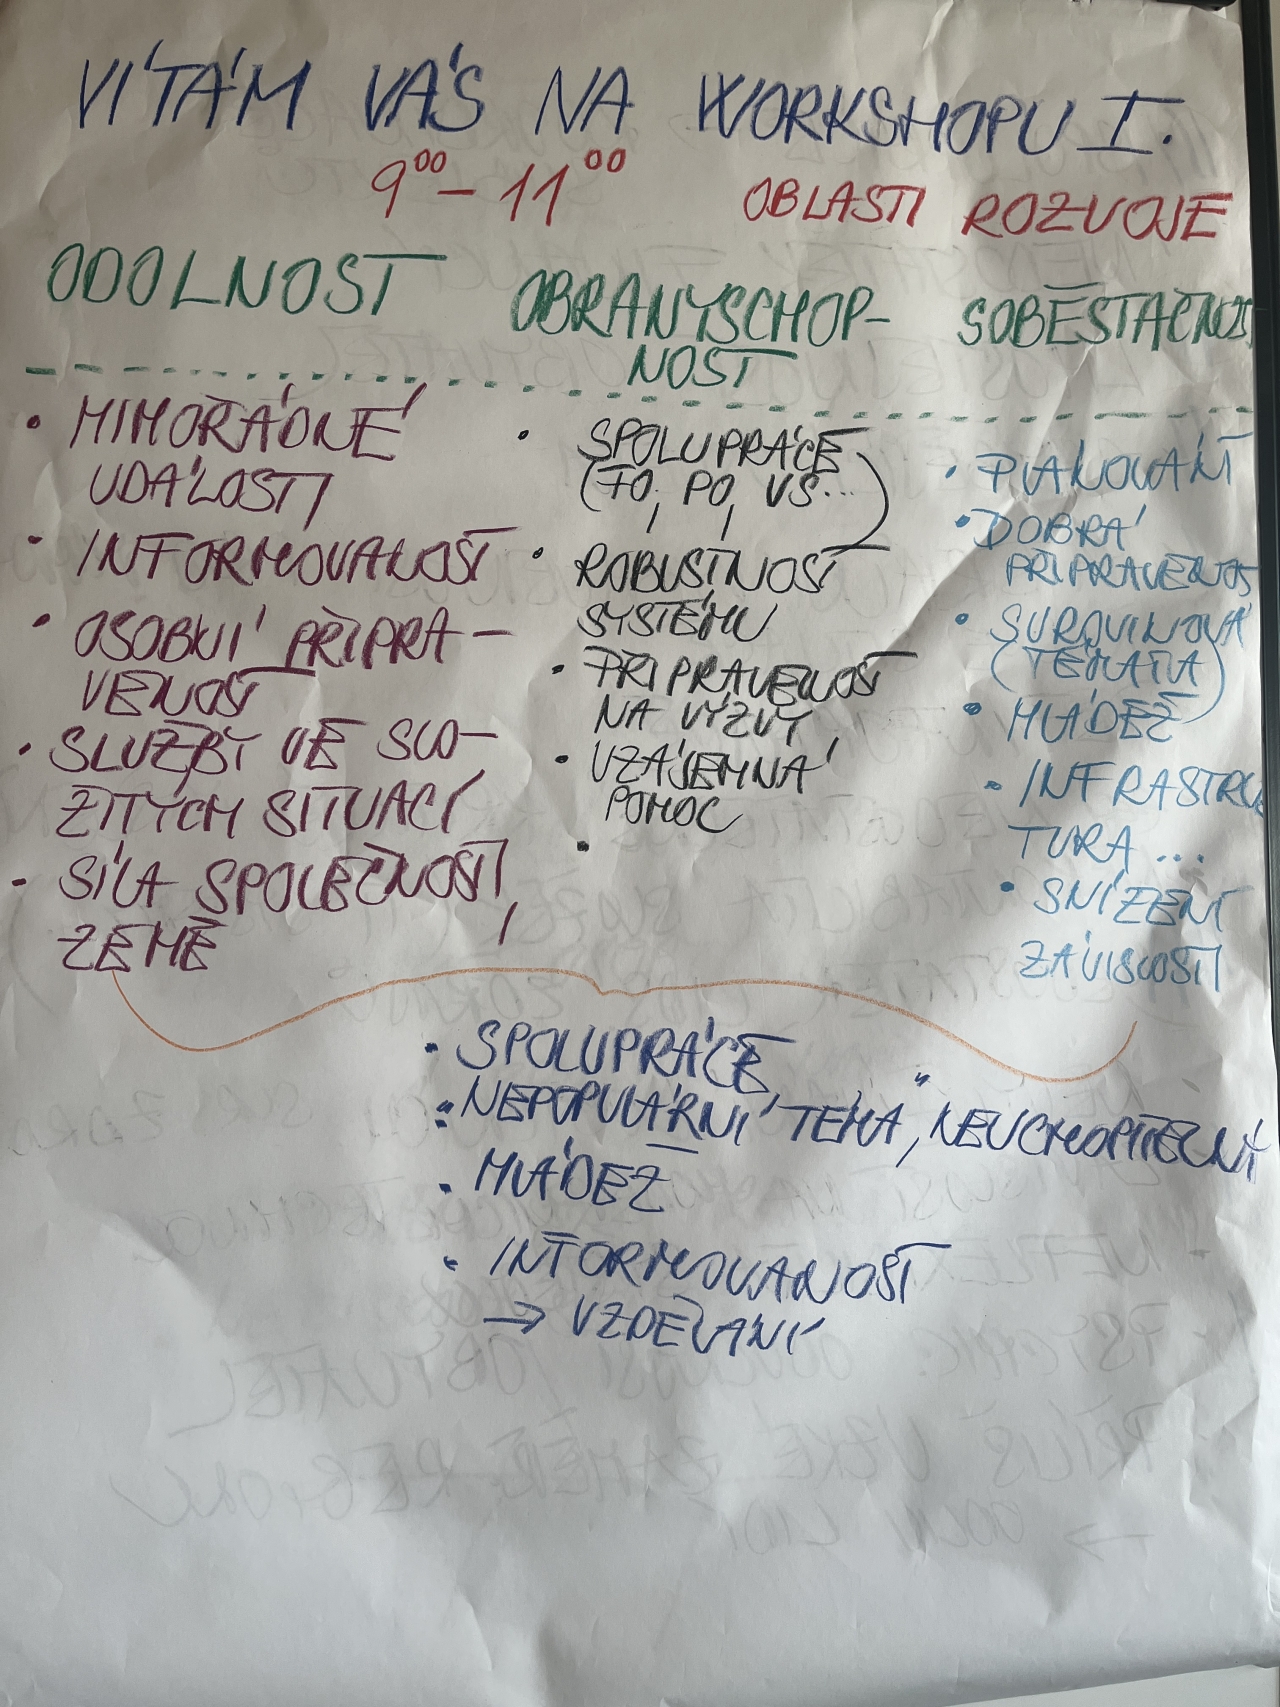 VÍTÁM VÁS NA WORKSHOPU I.
9⁰⁰ – 11⁰⁰
OBLASTI ROZVOJE
ODOLNOST
• MIMOŘÁDNÉ
UDÁLOSTI
• INFORMOVANOST
• OSOBNÍ PŘIPRA-
VENOST
• SLUŽBY VE SLO-
ŽITÝCH SITUACÍ
• SÍLA SPOLEČNOSTI,
ZEMĚ
OBRANYSCHOP-
NOST
• SPOLUPRÁCE
(FO, PO, VŠ...)
• ROBUSTNOST
SYSTÉMU
• PŘIPRAVENOST
NA VÝZVY
• VZÁJEMNÁ
POMOC
•
SOBĚSTAČNOST
• PLÁNOVÁNÍ
• DOBRÁ
PŘIPRAVENOS
• SUROVINOVÁ
(TÉMATA)
• MLÁDEŽ
• INFRASTRUK
TURA ...
• SNÍŽENÍ
ZÁVISLOSTI
• SPOLUPRÁCE
• "NEPOPULÁRNÍ TÉMA", NEUCHOPITELNÝ
• MLÁDEŽ
• INFORMOVANOST
→ VZDĚLÁNÍ